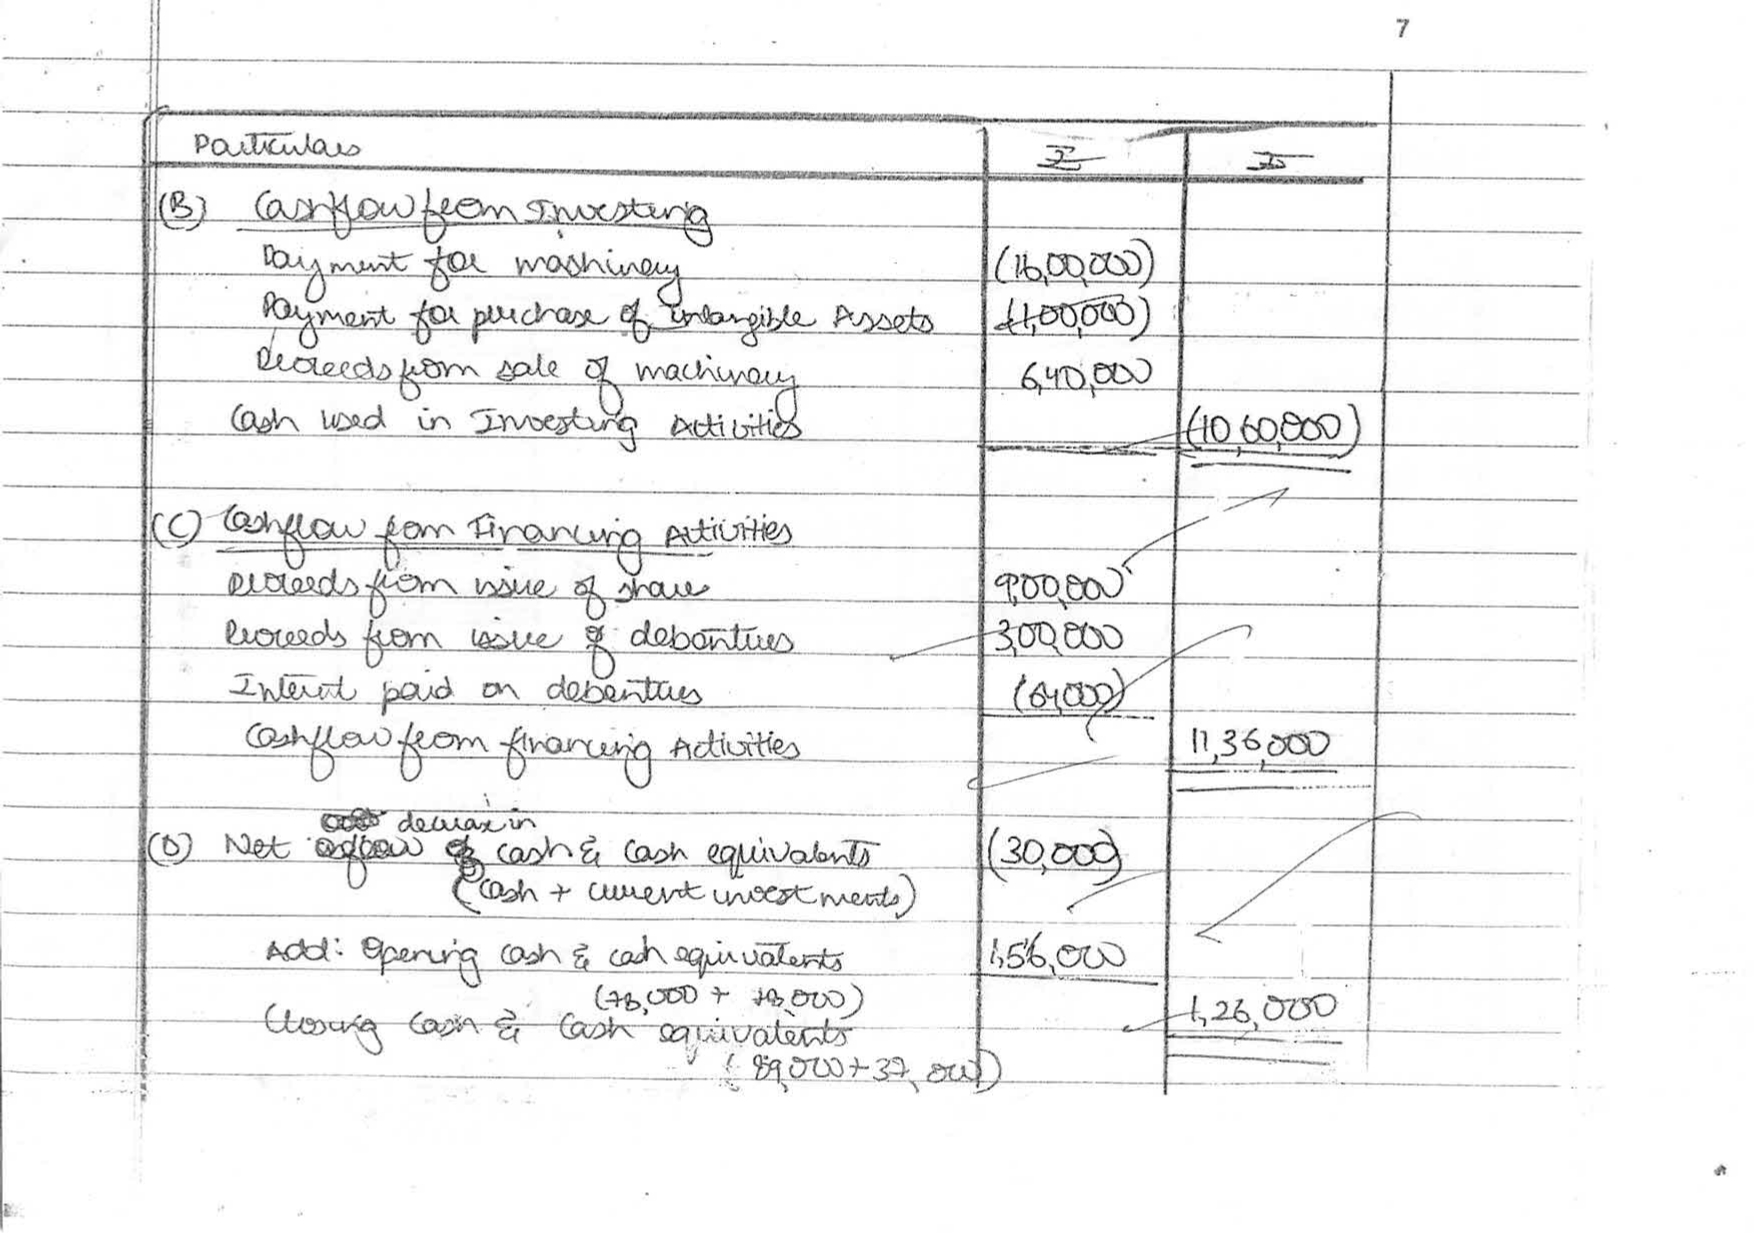 7
Particulars ₹ ₹
(B) Cashflow from Investing
Payment for machinery (16,00,000)
Payment for purchase of Intangible Assets (1,00,000)
Proceeds from sale of machinery 6,40,000
Cash used in Investing Activities (10,60,000)
(C) Cashflow from Financing Activities
Proceeds from issue of share 9,00,000
Proceeds from issue of debentures 3,00,000
Interest paid on debentures (64,000)
Cashflow from financing Activities 11,36,000
decrease in
(D) Net cash & cash equivalents (30,000)
(cash + current investments)
Add: Opening cash & cash equivalents 1,56,000
(78,000 + 78,000)
Closing cash & cash equivalents 1,26,000
(89,000 + 37,000)